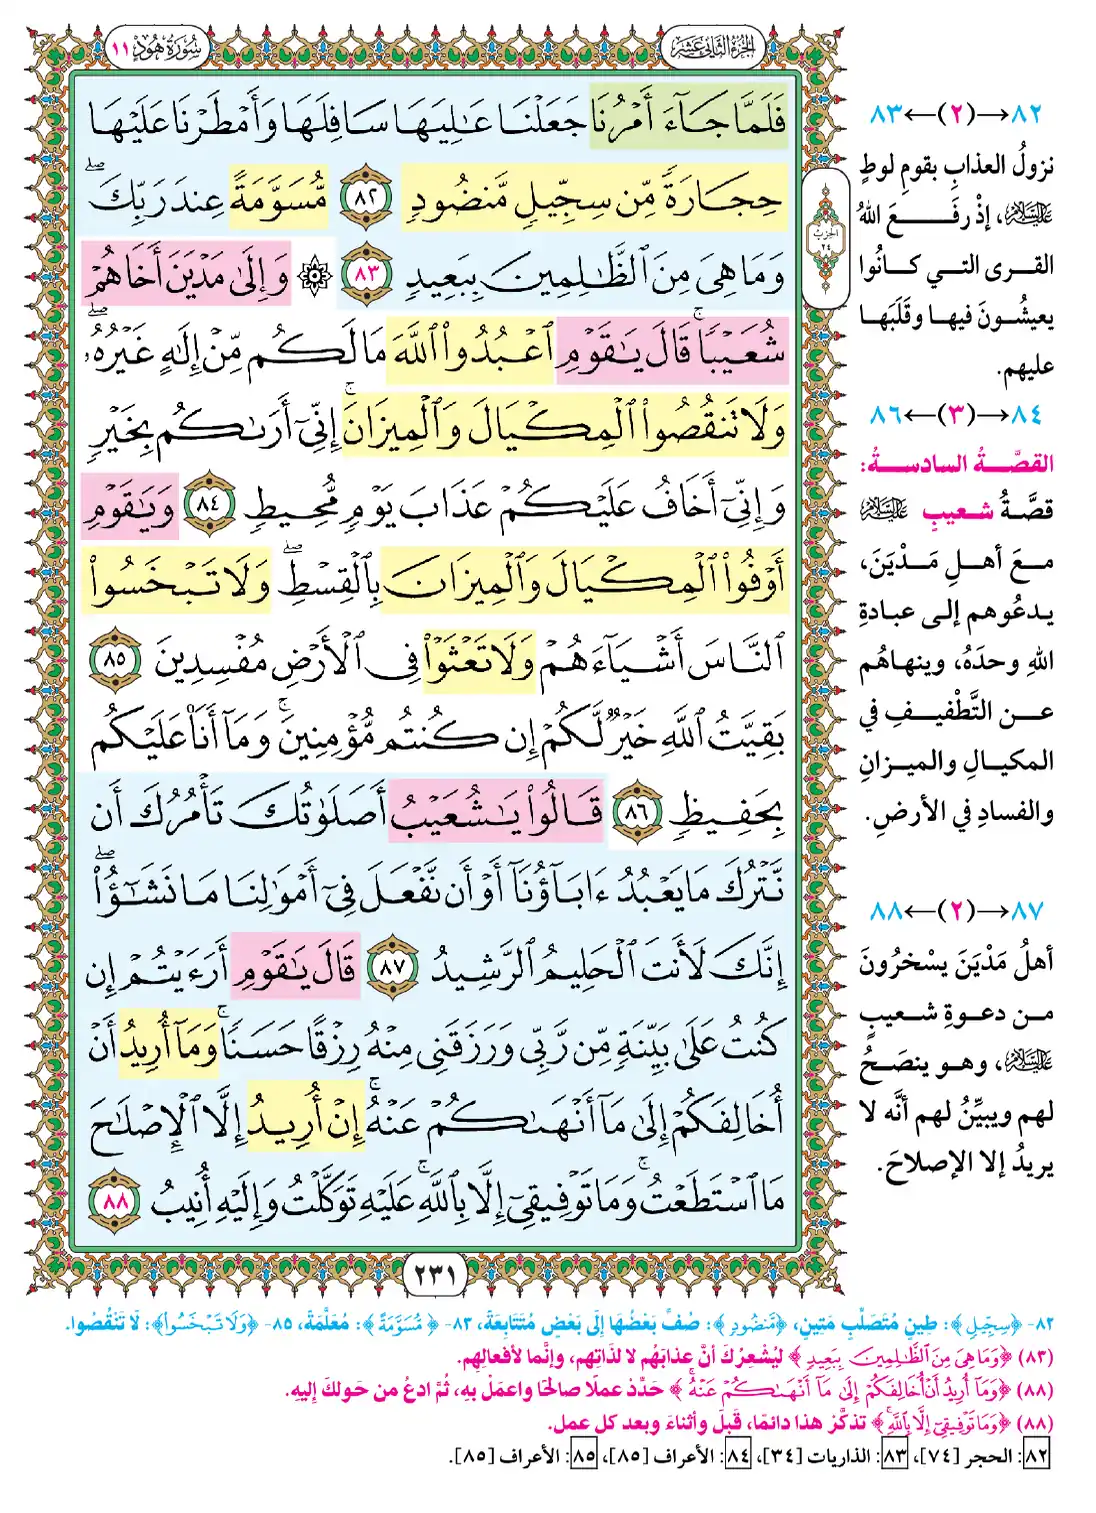 الجزء الثاني عشر
سورة هود ١١
فَلَمَّا جَآءَ أَمْرُنَا جَعَلْنَا عَٰلِيَهَا سَافِلَهَا وَأَمْطَرْنَا عَلَيْهَا
حِجَارَةً مِّن سِجِّيلٍ مَّنضُودٍ ٨٢ مُّسَوَّمَةً عِندَ رَبِّكَۖ
وَمَا هِىَ مِنَ ٱلظَّٰلِمِينَ بِبَعِيدٍ ٨٣ ۞ وَإِلَىٰ مَدْيَنَ أَخَاهُمْ
شُعَيْبًاۚ قَالَ يَٰقَوْمِ ٱعْبُدُوا۟ ٱللَّهَ مَا لَكُم مِّنْ إِلَٰهٍ غَيْرُهُۥۖ
وَلَا تَنقُصُوا۟ ٱلْمِكْيَالَ وَٱلْمِيزَانَۚ إِنِّىٓ أَرَىٰكُم بِخَيْرٍ
وَإِنِّىٓ أَخَافُ عَلَيْكُمْ عَذَابَ يَوْمٍ مُّحِيطٍ ٨٤ وَيَٰقَوْمِ
أَوْفُوا۟ ٱلْمِكْيَالَ وَٱلْمِيزَانَ بِٱلْقِسْطِۖ وَلَا تَبْخَسُوا۟
ٱلنَّاسَ أَشْيَآءَهُمْ وَلَا تَعْثَوْا۟ فِى ٱلْأَرْضِ مُفْسِدِينَ ٨٥
بَقِيَّتُ ٱللَّهِ خَيْرٌ لَّكُمْ إِن كُنتُم مُّؤْمِنِينَۚ وَمَآ أَنَا۠ عَلَيْكُم
بِحَفِيظٍ ٨٦ قَالُوا۟ يَٰشُعَيْبُ أَصَلَوٰتُكَ تَأْمُرُكَ أَن
نَّتْرُكَ مَا يَعْبُدُ ءَابَآؤُنَآ أَوْ أَن نَّفْعَلَ فِىٓ أَمْوَٰلِنَا مَا نَشَٰٓؤُا۟ۖ
إِنَّكَ لَأَنتَ ٱلْحَلِيمُ ٱلرَّشِيدُ ٨٧ قَالَ يَٰقَوْمِ أَرَءَيْتُمْ إِن
كُنتُ عَلَىٰ بَيِّنَةٍ مِّن رَّبِّى وَرَزَقَنِى مِنْهُ رِزْقًا حَسَنًاۚ وَمَآ أُرِيدُ أَنْ
أُخَالِفَكُمْ إِلَىٰ مَآ أَنْهَىٰكُمْ عَنْهُۚ إِنْ أُرِيدُ إِلَّا ٱلْإِصْلَٰحَ
مَا ٱسْتَطَعْتُۚ وَمَا تَوْفِيقِىٓ إِلَّا بِٱللَّهِۚ عَلَيْهِ تَوَكَّلْتُ وَإِلَيْهِ أُنِيبُ ٨٨
٢٣١
الحزب
٢٤
٨٢→(٢)←٨٣
نزولُ العذابِ بقومِ لوطٍ
عليه السلام، إذْ رفَعَ اللهُ
القرى التي كانُوا
يعيشُونَ فيها وقَلَبَها
عليهم.
٨٤→(٣)←٨٦
القصَّةُ السادسةُ:
قصَّةُ شعيبٍ عليه السلام
معَ أهلِ مَدْيَنَ،
يدعُوهم إلى عبادةِ
اللهِ وحدَهُ، وينهاهُم
عن التَّطْفيفِ في
المكيالِ والميزانِ
والفسادِ في الأرضِ.
٨٧→(٢)←٨٨
أهلُ مَدْيَنَ يسْخرُونَ
من دعوةِ شعيبٍ
عليه السلام، وهو ينصَحُ
لهم ويبيِّنُ لهم أنَّه لا
يريدُ إلا الإصلاحَ.
٨٢- ﴿سِجِّيلٍ﴾: طِينٍ مُتَصَلِّبٍ مَتِينٍ، ﴿مَّنضُودٍ﴾: صُفَّ بَعْضُهَا إِلَى بَعْضٍ مُتَتَابِعَةً، ٨٣- ﴿مُسَوَّمَةً﴾: مُعَلَّمَةً، ٨٥- ﴿وَلَا تَبْخَسُوا۟﴾: لَا تَنْقُصُوا.
(٨٣) ﴿وَمَا هِىَ مِنَ ٱلظَّٰلِمِينَ بِبَعِيدٍ﴾ ليُشْعِرُكَ أنَّ عذابَهُم لا لذَاتِهم، وإنَّما لأفعالِهِم.
(٨٨) ﴿وَمَآ أُرِيدُ أَنْ أُخَالِفَكُمْ إِلَىٰ مَآ أَنْهَىٰكُمْ عَنْهُ﴾ حَدِّد عملًا صالحًا واعملْ بهِ، ثُمَّ ادعُ من حَولكَ إليهِ.
(٨٨) ﴿وَمَا تَوْفِيقِىٓ إِلَّا بِٱللَّهِ﴾ تذكَّر هذا دائمًا، قَبلَ وأثناءَ وبعد كل عمل.
٨٢: الحجر [٧٤]، ٨٣: الذاريات [٣٤]، ٨٤: الأعراف [٨٥]، ٨٥: الأعراف [٨٥].